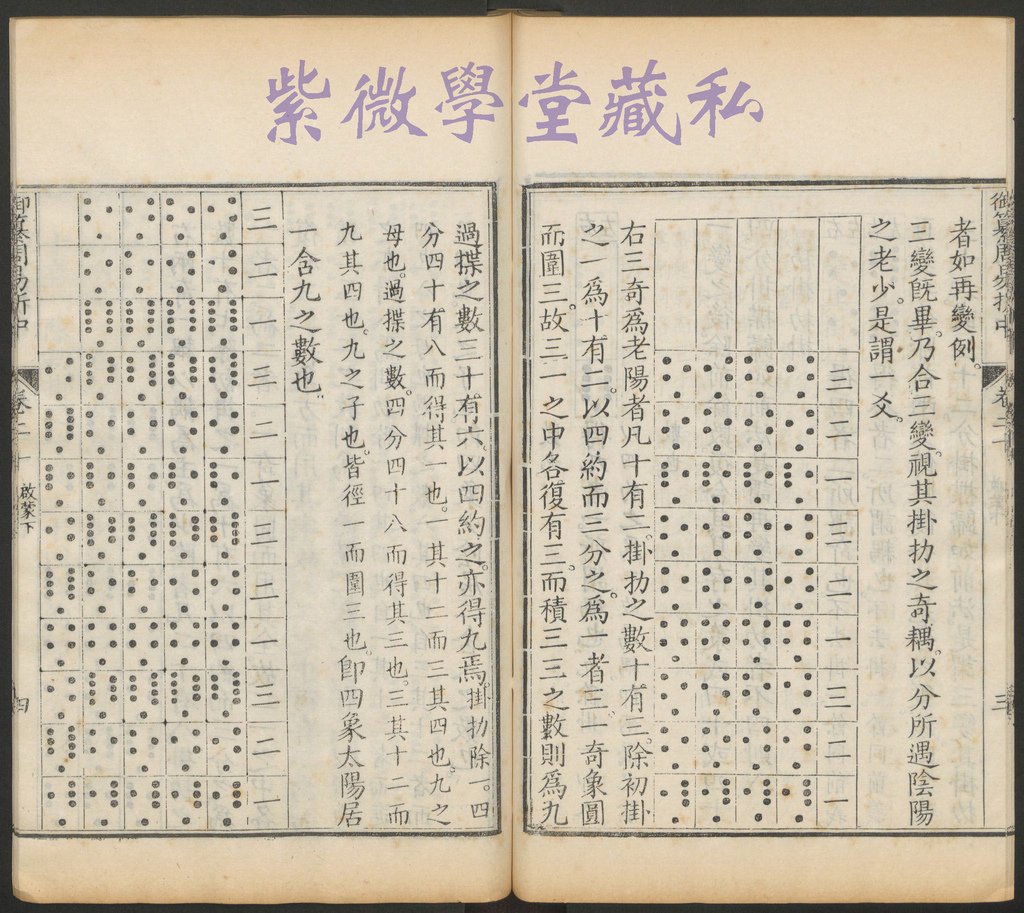 紫微學堂藏私
御纂周易折中
卷二十
三
者如再變例。
三變既畢。乃合三變。視其掛扐之奇耦。以分所遇陰陽
之老少。是謂一爻。
三二一三二一三二一
右三奇爲老陽者凡十有二。掛扐之數十有三。除初掛
之一爲十有二。以四約而三分之。爲一者三。一奇象圓
而圍三。故三一之中各復有三。而積三三之數則爲九
過揲之數三十有六。以四約之。亦得九焉。掛扐除一。四
分四十有八而得其一也。一其十二而三其四也。九之
母也。過揲之數。四分四十八而得其三也。三其十二而
九其四也。九之子也。皆徑一而圍三也。卽四象太陽居
一含九之數也。
三二一三二一三二一三二一
御纂周易折中
卷二十
啟蒙下
四